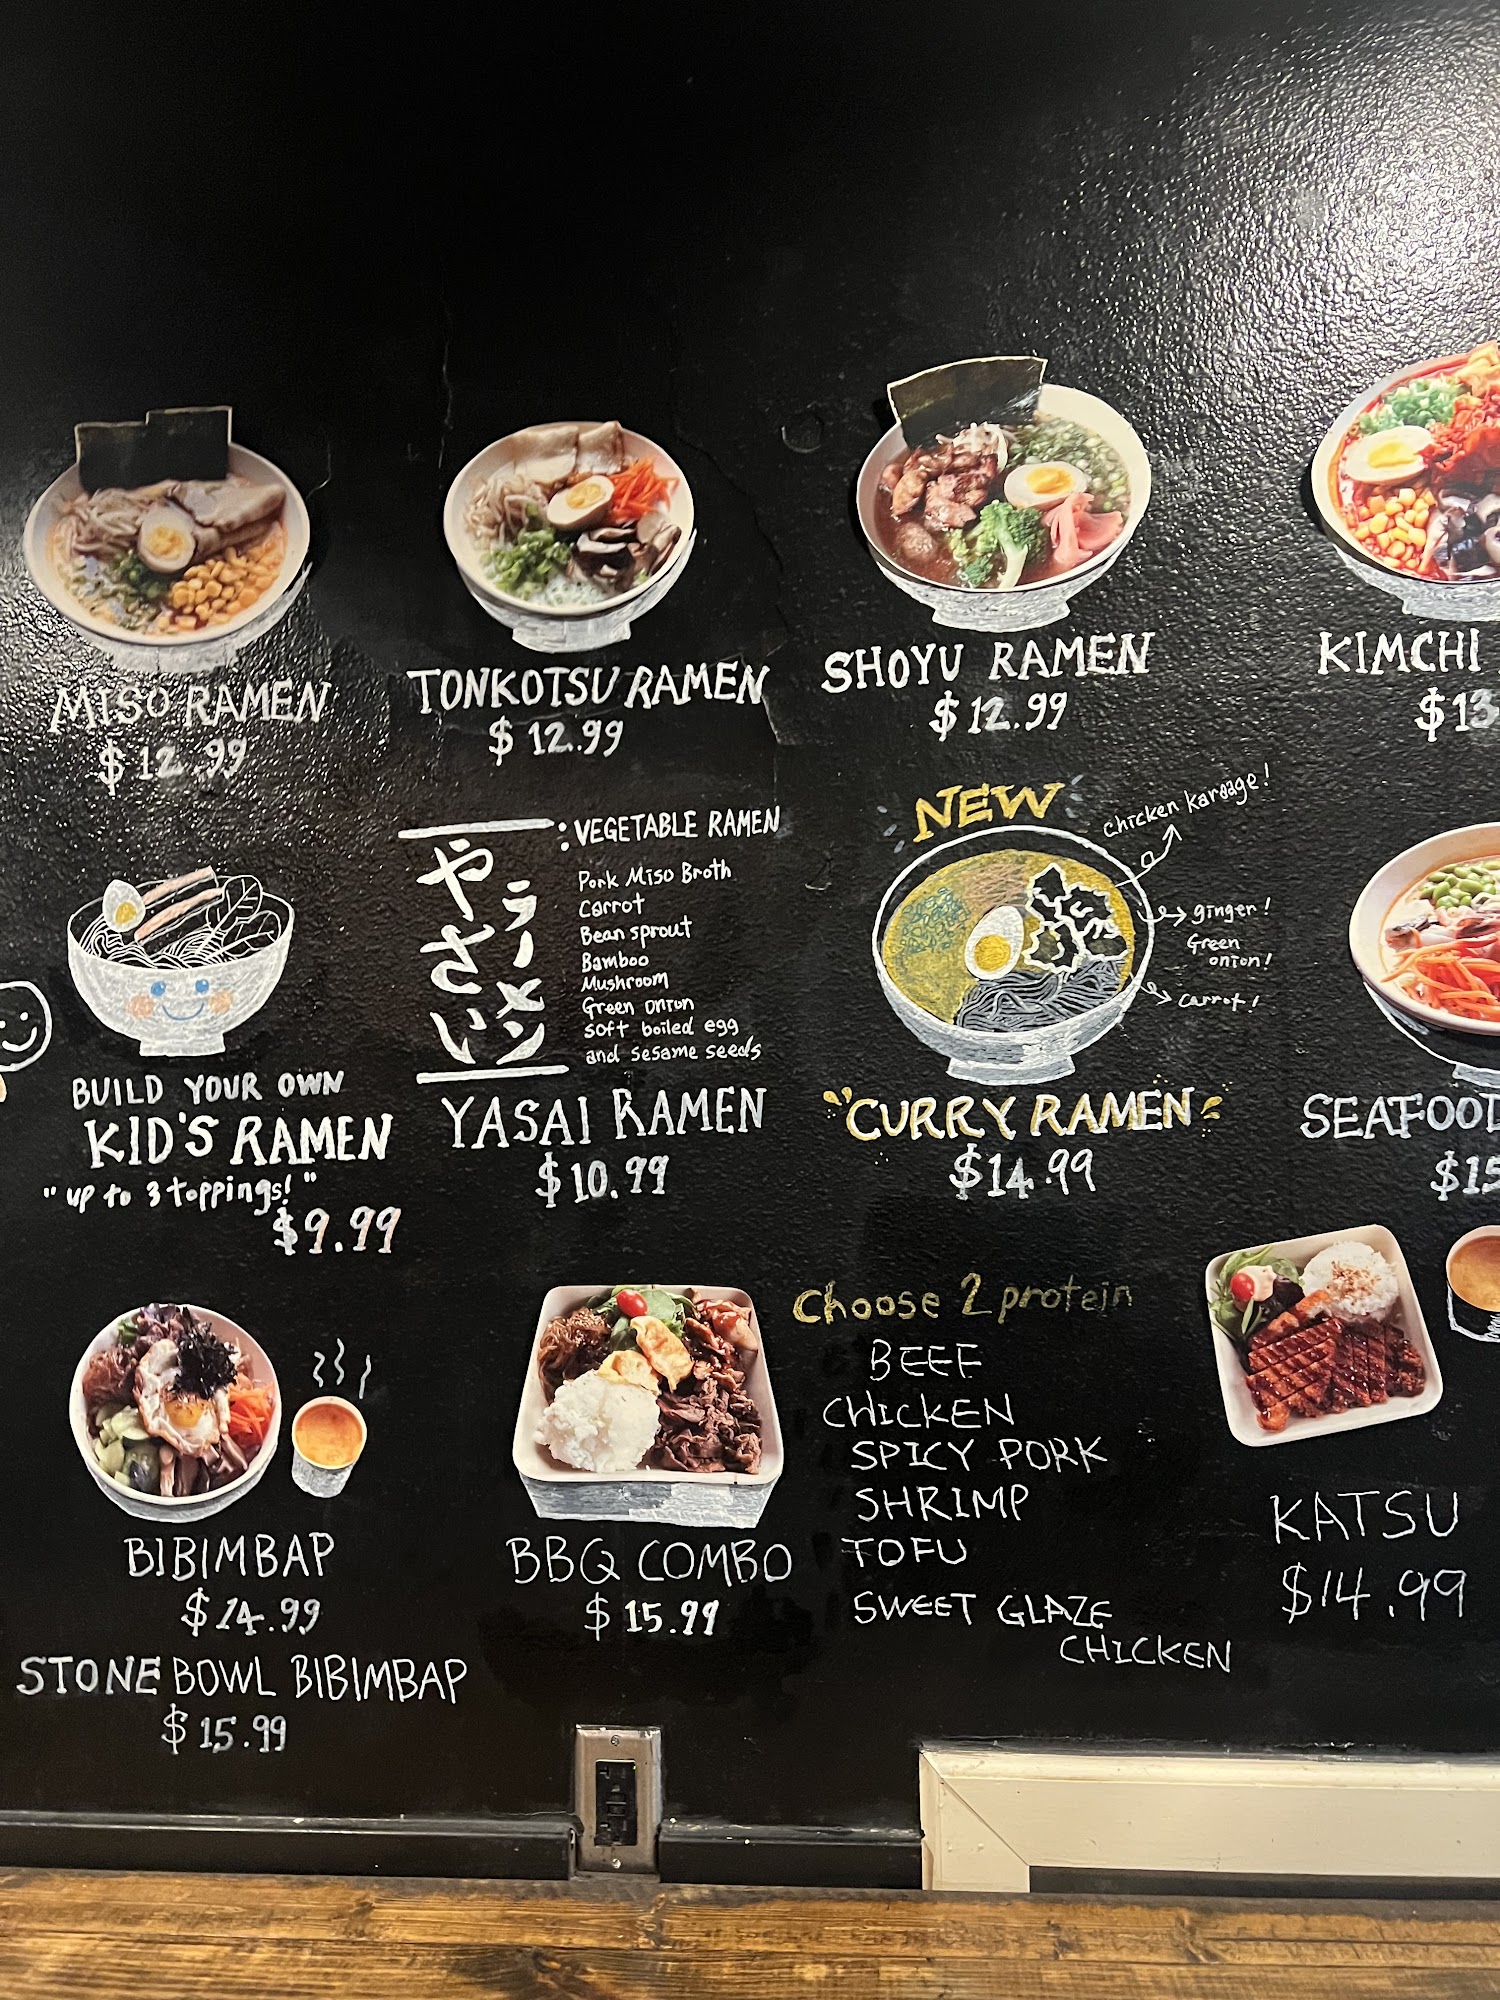 MISO RAMEN
$12.99
TONKOTSU RAMEN
$12.99
SHOYU RAMEN
$12.99
KIMCHI
$13
BUILD YOUR OWN
KID'S RAMEN
"up to 3 toppings!"
$9.99
やさい
ラーメン
: VEGETABLE RAMEN
Pork Miso Broth
Carrot
Bean sprout
Bamboo
Mushroom
Green onion
soft boiled egg
and sesame seeds
YASAI RAMEN
$10.99
NEW
Chicken Karaage!
ginger!
Green
onion!
carrot!
CURRY RAMEN
$14.99
SEAFOOD
$15
BIBIMBAP
$14.99
STONE BOWL BIBIMBAP
$15.99
BBQ COMBO
$15.99
Choose 2 protein
BEEF
CHICKEN
SPICY PORK
SHRIMP
TOFU
SWEET GLAZE
CHICKEN
KATSU
$14.99